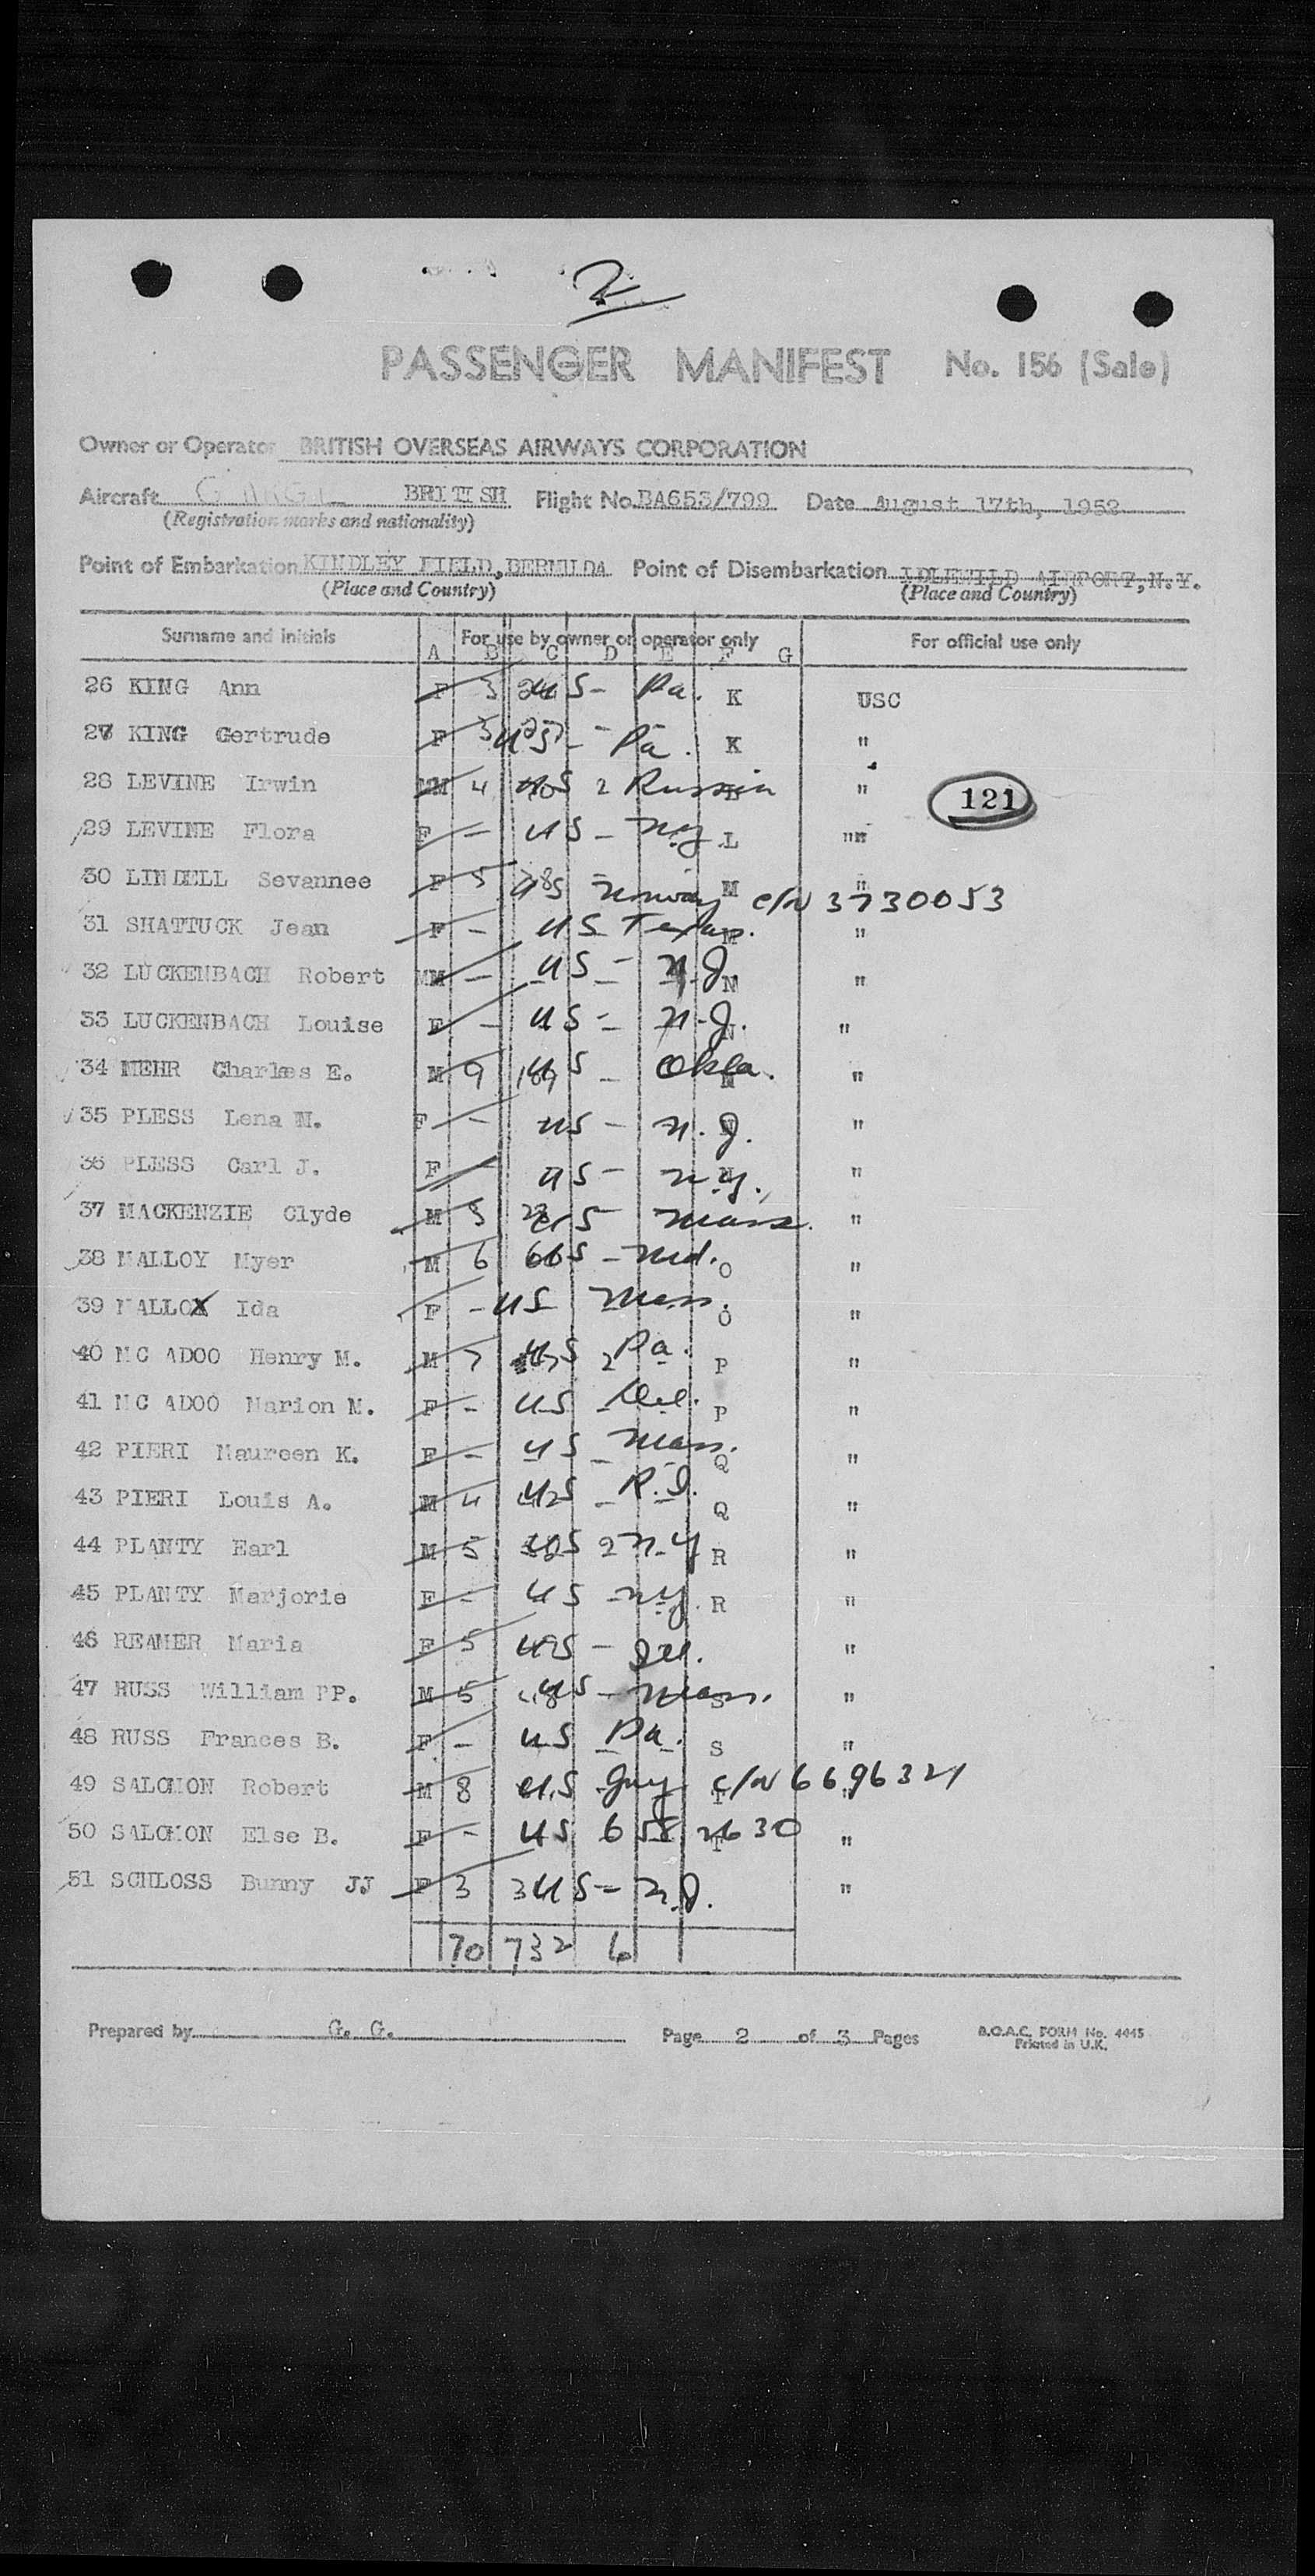 2
PASSENGER MANIFEST No. 156 (Sale)
Owner or Operator BRITISH OVERSEAS AIRWAYS CORPORATION
Aircraft BRITISH Flight No. BA653/799 Date August 17th, 1952
(Registration marks and nationality)
Point of Embarkation KINDLEY FIELD, BERMUDA Point of Disembarkation IDLEWILD AIRPORT, N.Y.
(Place and Country) (Place and Country)
Surname and initials For use by owner or operator only For official use only
A B C D E F G
26 KING Ann F 3 US - Pa. K USC
27 KING Gertrude F 3 US - Pa. K "
28 LEVINE Irwin M 4 US 2 Russia "
121
29 LEVINE Flora F - US - N.Y. L "
30 LINDELL Sevannee F 5 US - Norway M "
c/n 3730053
31 SHATTUCK Jean F - US Texas. M "
32 LUCKENBACH Robert M - US - N.J. N "
33 LUCKENBACH Louise F - US - N.J. N "
34 MEHR Charles E. M 9 US - Okla. "
35 PLESS Lena M. F - US - N.J. "
36 PLESS Carl J. F US - N.Y. "
37 MACKENZIE Clyde M 3 US Mass. "
38 MALLOY Myer M 6 US - Md. O "
39 MALLOY Ida F - US Mass. O "
40 MC ADOO Henry M. M 7 US 2 Pa. P "
41 MC ADOO Marion M. F - US - Del. P "
42 PIERI Maureen K. F - US - Mass. Q "
43 PIERI Louis A. M 4 US - R.I. Q "
44 PLANTY Earl M 5 US 2 N.Y R "
45 PLANTY Marjorie F - US - N.Y. R "
46 REAMER Maria F 5 US - Ill. "
47 RUSS William PP. M 5 US - Mass. S "
48 RUSS Frances B. F - US Pa. S "
49 SALOMON Robert M 8 US Gny c/n 6696321 T "
50 SALOMON Else B. F - US 658 2630 T "
51 SCHLOSS Bunny JJ F 3 US - N.J. "
70 732 6
Prepared by G. G. Page 2 of 3 Pages B.O.A.C. FORM No. 4445
Printed in U.K.